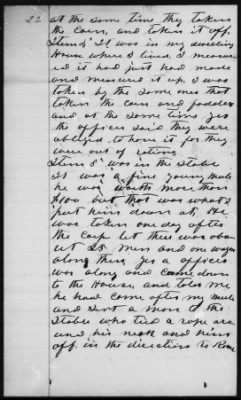 22 at the same time they taken
the corn, and taken it off.
Item 4 It was in my dwelling
House where I lived, I measur
ed it had just had made
and measured it up. I was
taken by the same ones that
taken the corn and fodder
and at the same time yes
the officer said they were
obliged to have it for they
were out of rations.
Item 5 was in the Stable
It was a fine young mule
he was worth more than
$100 but that was what I
put him down at, He
was taken one day after
the Corn but there was abo
ut 25 men and one wagon
along there, yes a officer
was along and came down
to the House, and told me
he had come after my mule
and sent a man to the
Stable who tied a rope aro
und his neck and him
off in the direction to Rome